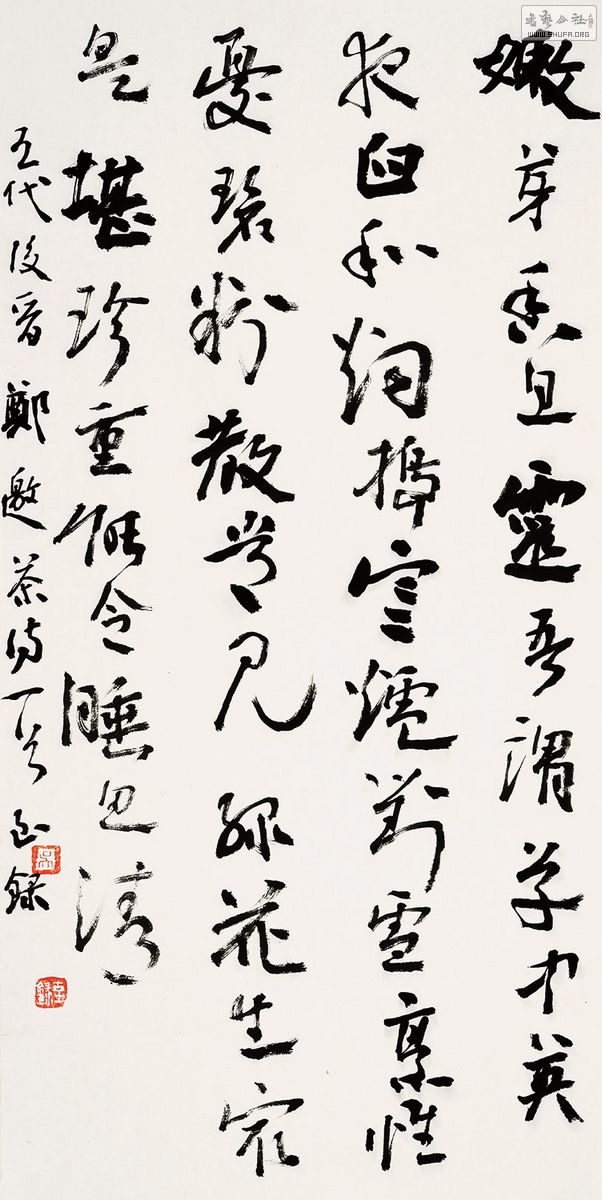 嫩芽香且靈吾謂草中英
夜臼和烟搗寒爐對雪烹惟
憂碧粉散常見綠花生最
是堪珍重能令睡思清
五代後晉鄭邀茶詩一首 錄
書藝公社
WWW.SHUFA.ORG